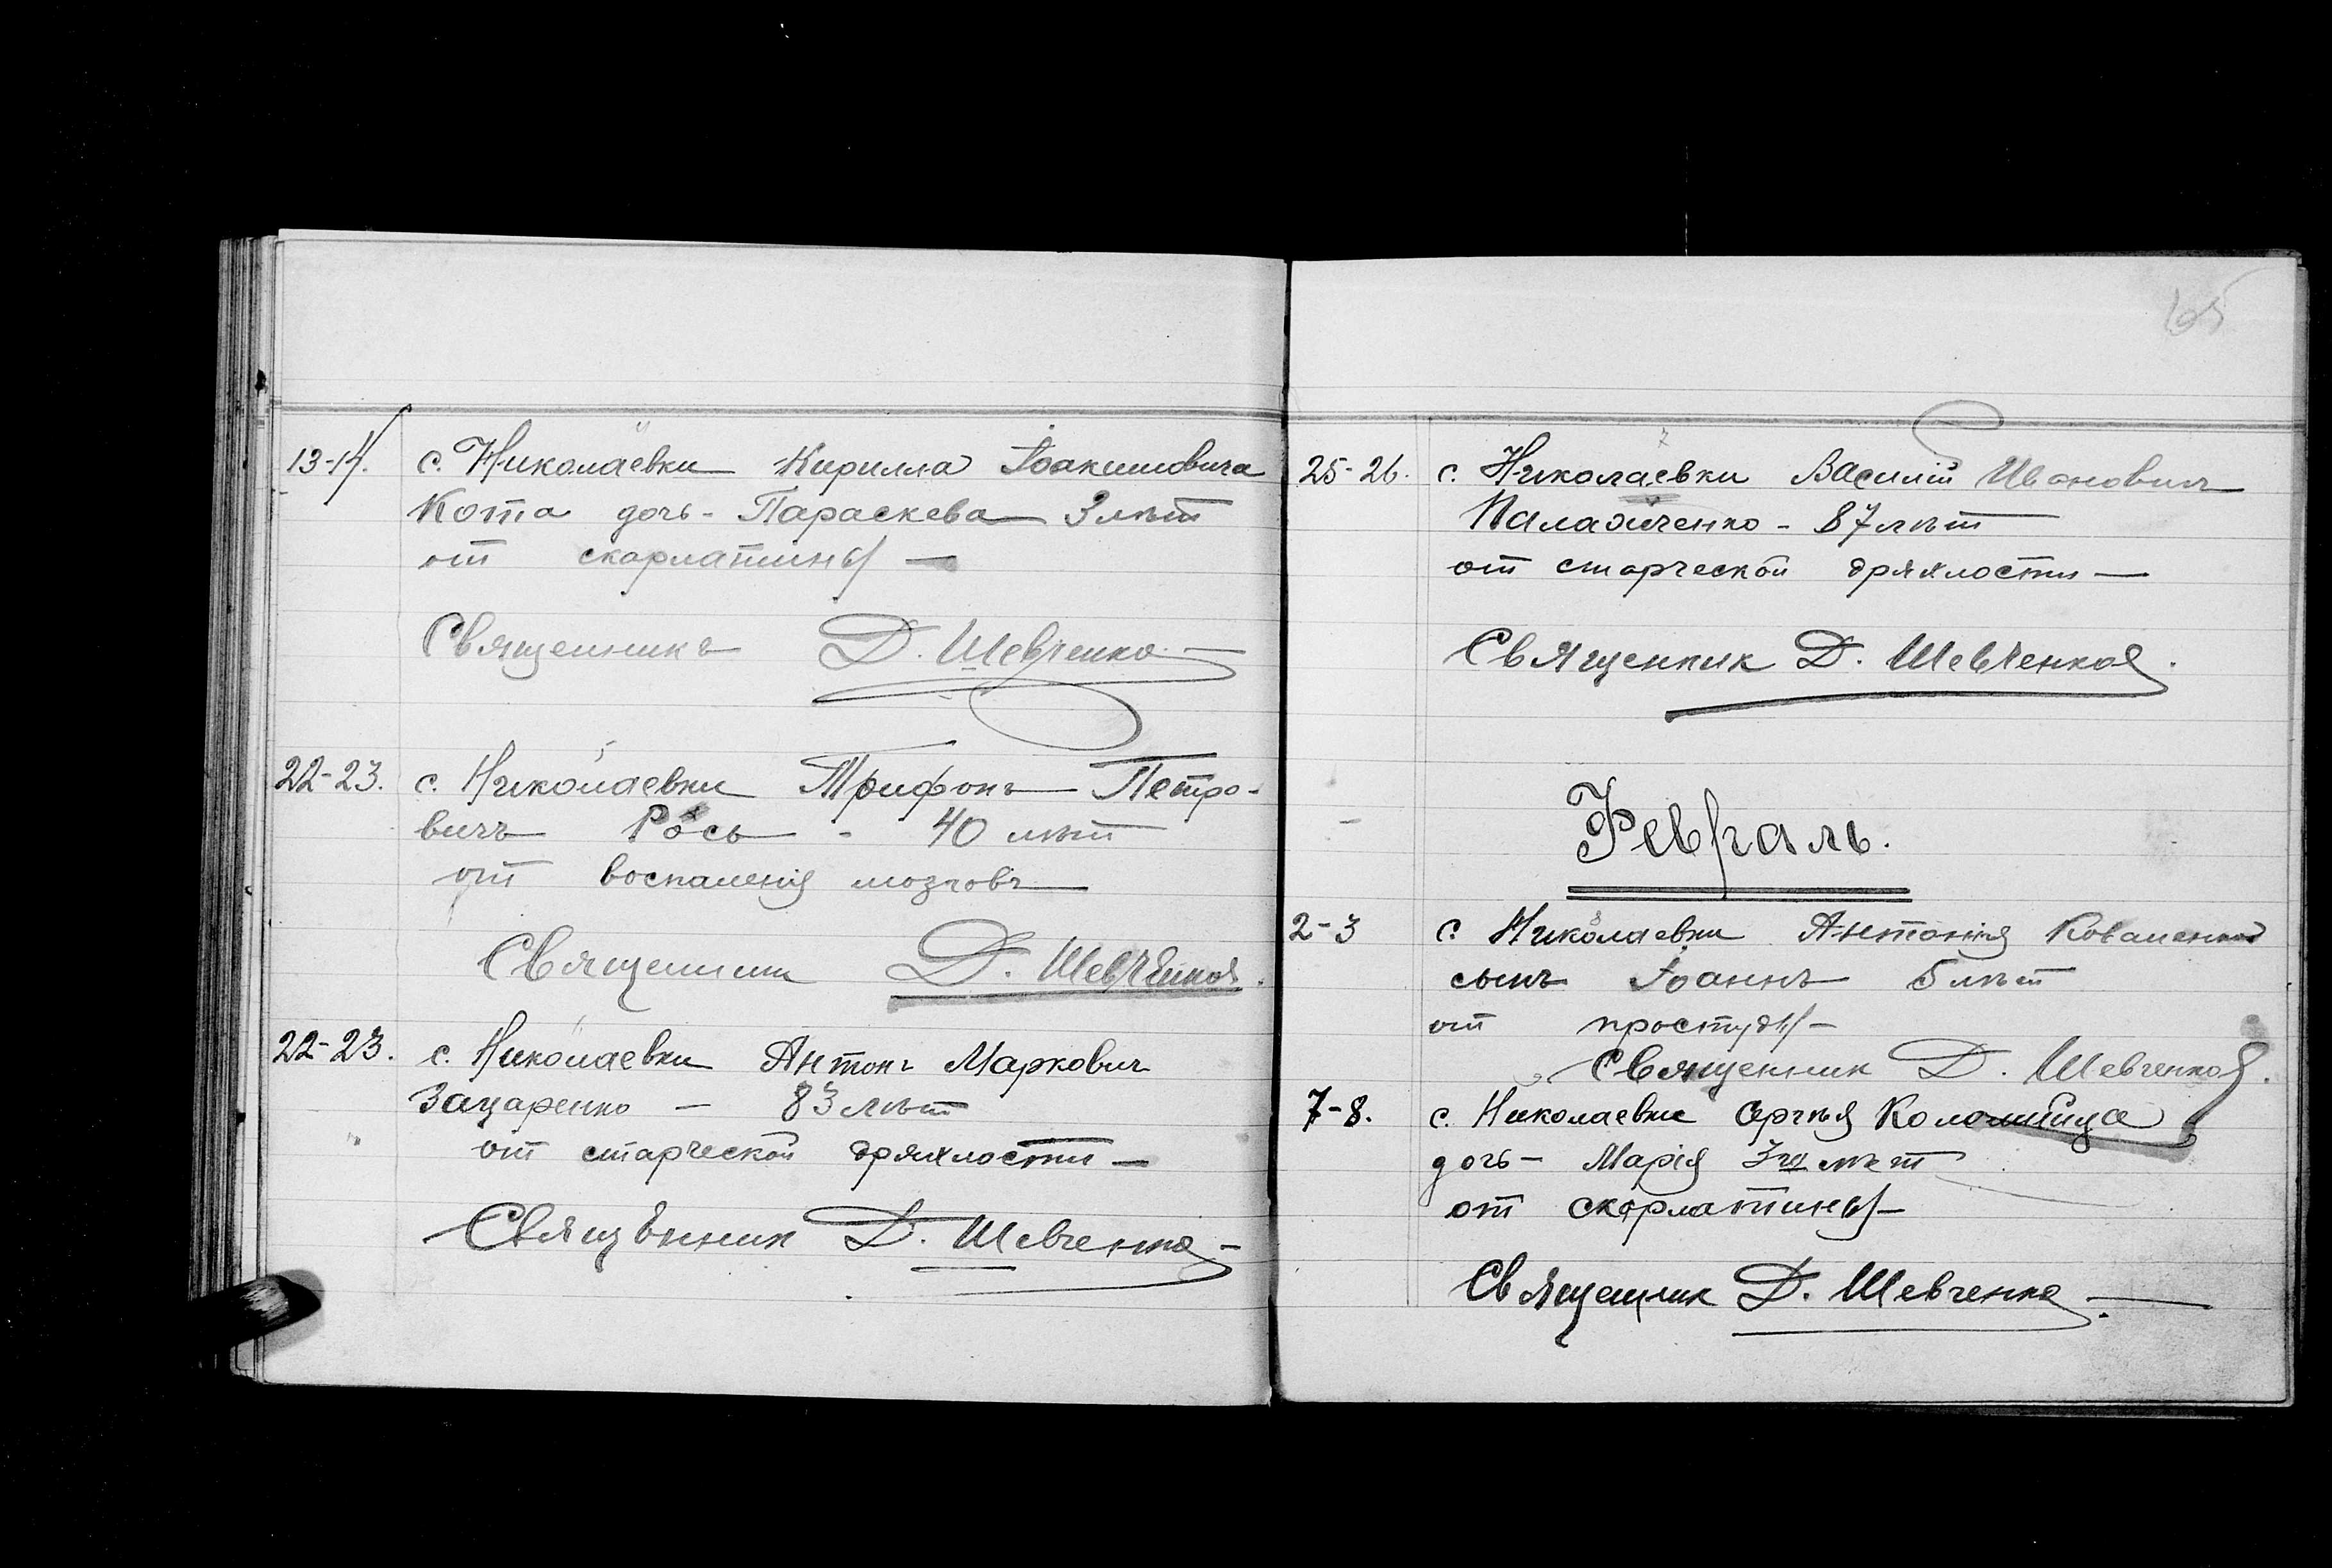 13-14. с. Николаевки Кирилла Іоакимовича
Кота дочь - Параскева 3 лѣт
от скарлатины —
Священникъ Д. Шевченко.
22-23. с. Николаевки Трифонъ Петро-
вичъ Рось - 40 лѣт
от воспаленія мозговъ
Священник Д. Шевченко.
22-23. с. Николаевки Антонъ Маркович
Зацаренко — 83 лѣт
от старческой дряхлости —
Священник Д. Шевченко —
65
7
25-26. с. Николаевки Василій Иванович
Паладиченко - 87 лѣт
от старческой дряхлости —
Священник Д. Шевченко.
Февраль.
2-3 с. Николаевки Антонія Коваленко
сынъ Іоаннъ 5 лѣт
от простуды —
Священник Д. Шевченко.
7-8. с. Николаевки Сергѣя Коломийца
дочь - Марія 3 лѣт
от скарлатины —
Священник Д. Шевченко.